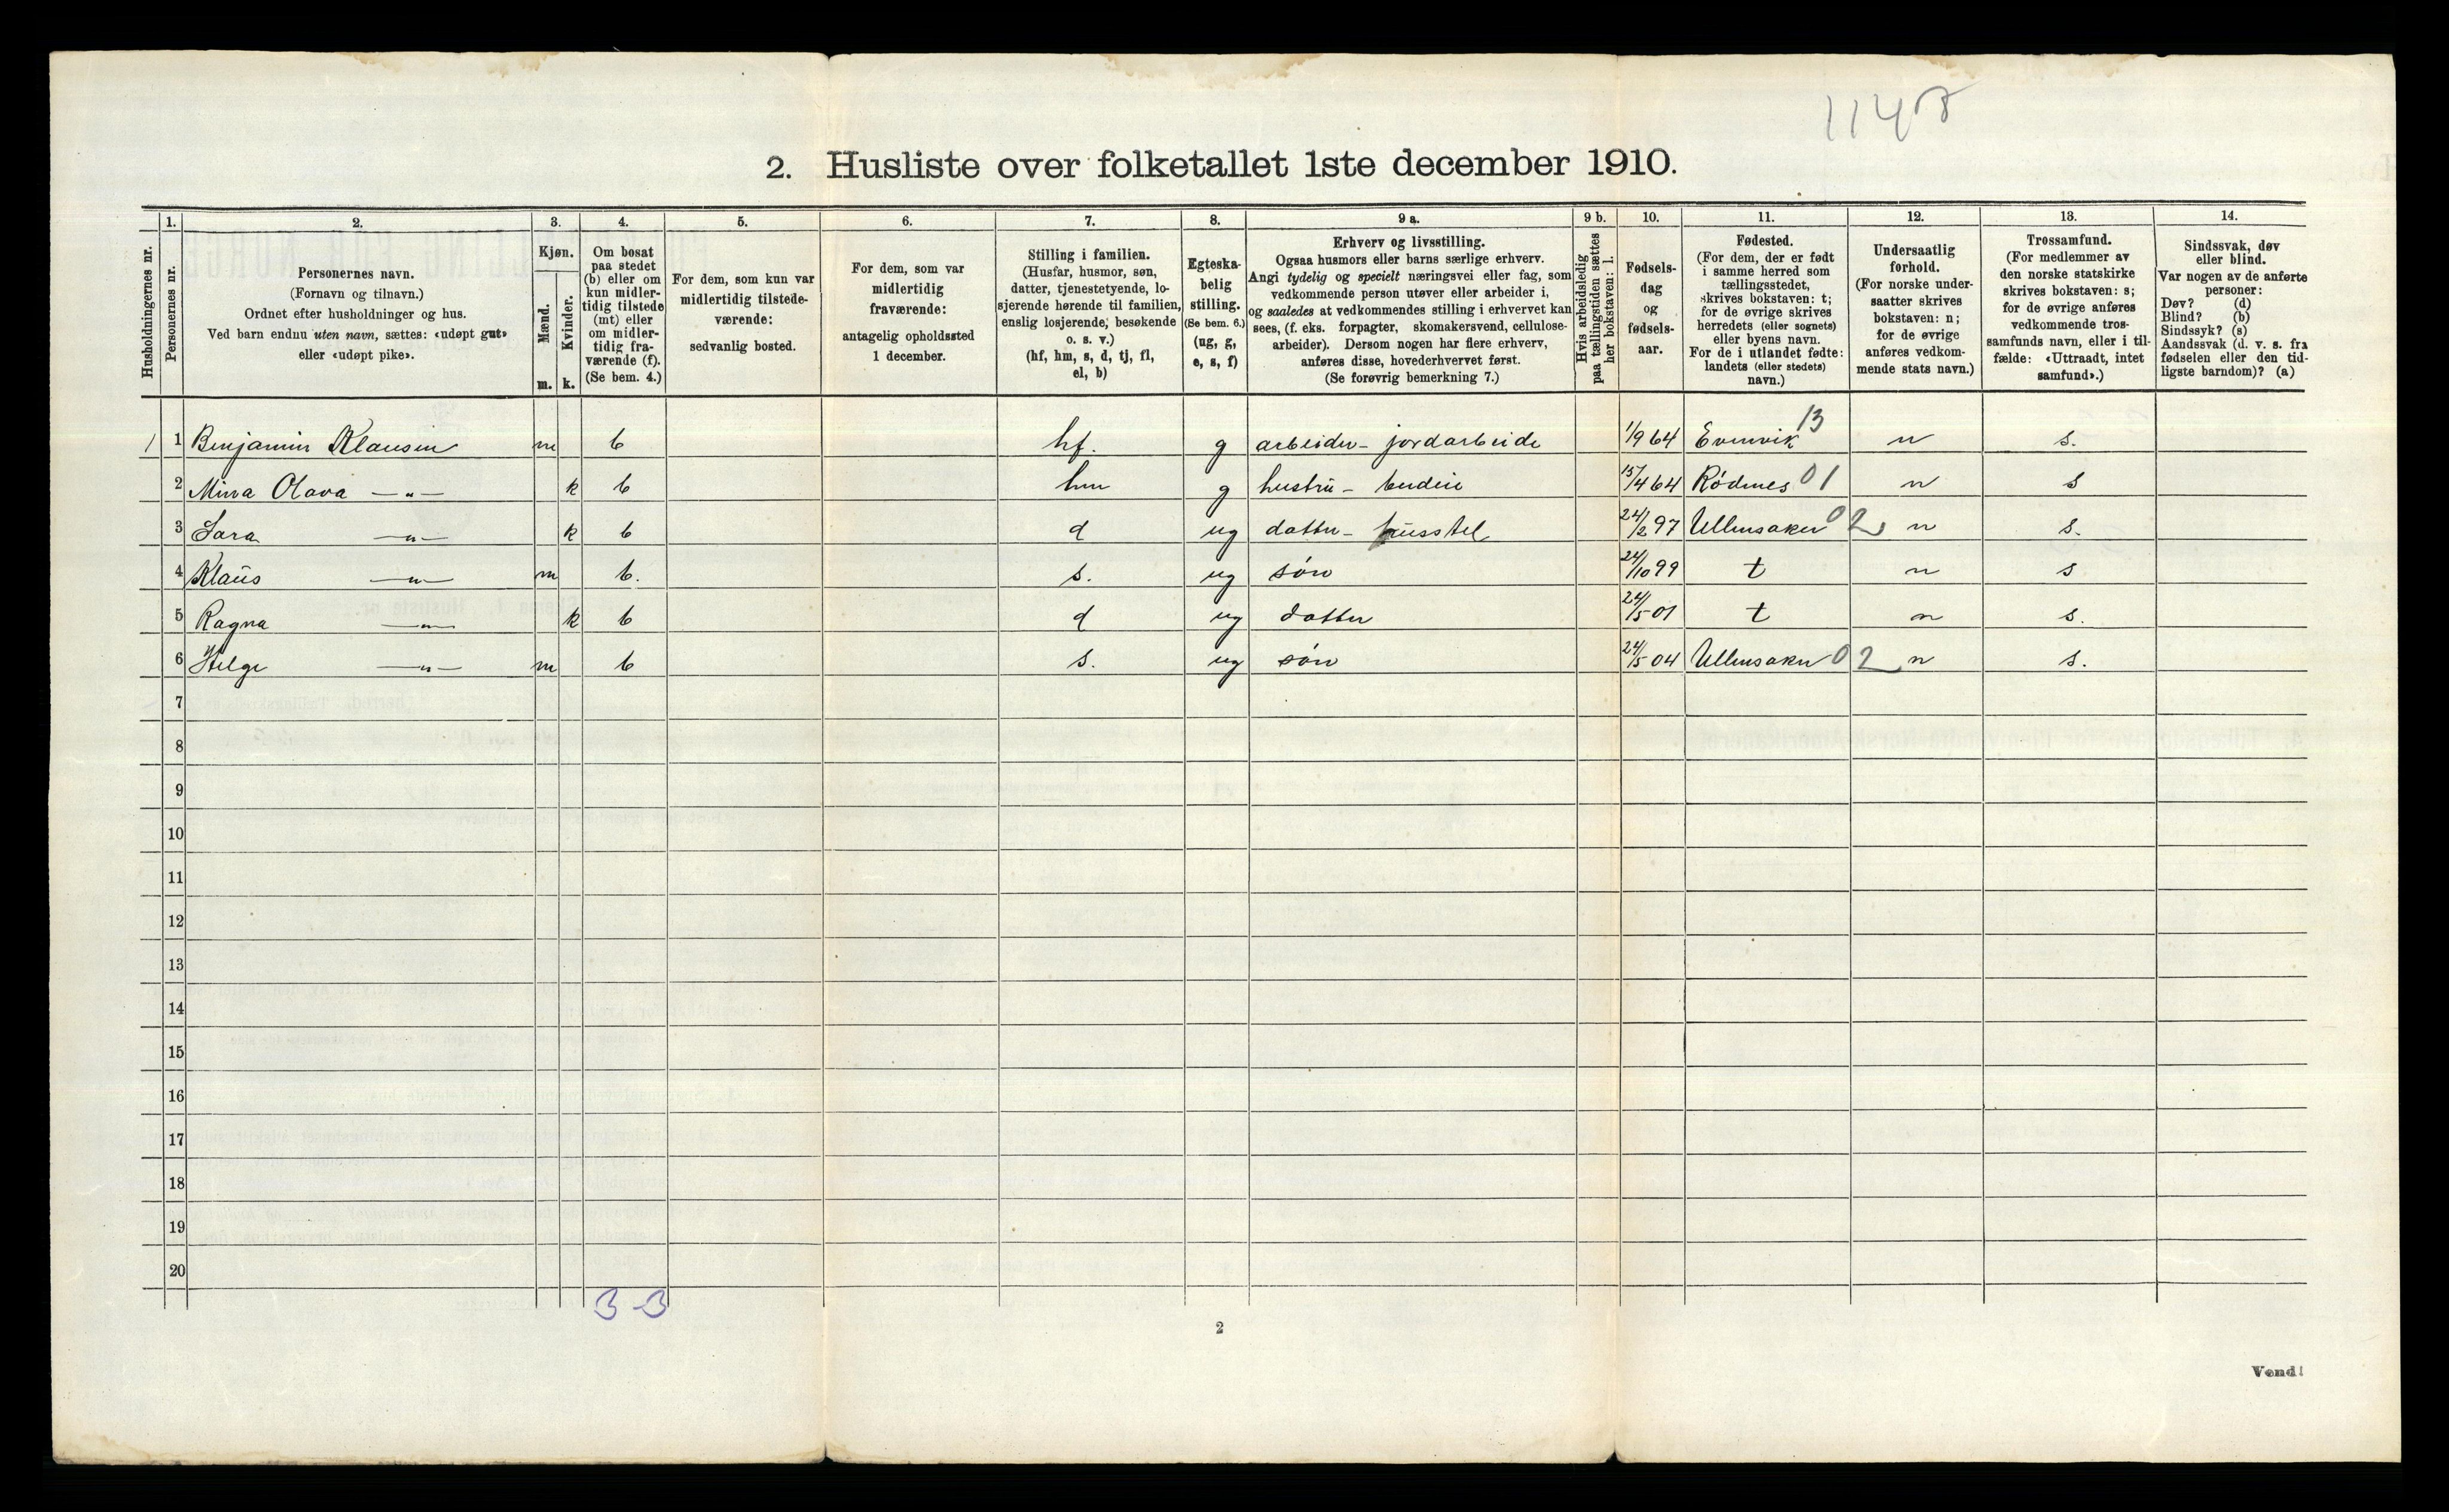 1148
2. Husliste over folketallet 1ste december 1910.
Husholdningernes nr.
1. Personernes nr.
2. Personernes navn.
(Fornavn og tilnavn.)
Ordnet efter husholdninger og hus.
Ved barn endnu uten navn, sættes: «udøpt gut»
eller «udøpt pike».
3. Kjøn.
Mænd. m.
Kvinder. k.
4. Om bosat
paa stedet
(b) eller om
kun midler-
tidig tilstede
(mt) eller
om midler-
tidig fra-
værende (f).
(Se bem. 4.)
5. For dem, som kun var
midlertidig tilstede-
værende:
sedvanlig bosted.
6. For dem, som var
midlertidig
fraværende:
antagelig opholdssted
1 december.
7. Stilling i familien.
(Husfar, husmor, søn,
datter, tjenestetyende, lo-
sjerende hørende til familien,
enslig losjerende, besøkende
o. s. v.)
(hf, hm, s, d, tj, fl,
el, b)
8. Egteska-
belig
stilling.
(Se bem. 6.)
(ug, g,
e, s, f)
9 a. Erhverv og livsstilling.
Ogsaa husmors eller barns særlige erhverv.
Angi tydelig og specielt næringsvei eller fag, som
vedkommende person utøver eller arbeider i,
og saaledes at vedkommendes stilling i erhvervet kan
sees, (f. eks. forpagter, skomakersvend, cellulose-
arbeider). Dersom nogen har flere erhverv,
anføres disse, hovederhvervet først.
(Se forøvrig bemerkning 7.)
9 b. Hvis arbeidsledig
paa tællingstiden sættes
her bokstaven: l.
10. Fødsels-
dag
og
fødsels-
aar.
11. Fødested.
(For dem, der er født
i samme herred som
tællingsstedet,
skrives bokstaven: t;
for de øvrige skrives
herredets (eller sognets)
eller byens navn.
For de i utlandet fødte:
landets (eller stedets)
navn.)
12. Undersaatlig
forhold.
(For norske under-
saatter skrives
bokstaven: n;
for de øvrige
anføres vedkom-
mende stats navn.)
13. Trossamfund.
(For medlemmer av
den norske statskirke
skrives bokstaven: s;
for de øvrige anføres
vedkommende tros-
samfunds navn, eller i til-
fælde: «Uttraadt, intet
samfund».)
14. Sindssvak, døv
eller blind.
Var nogen av de anførte
personer:
Døv? (d)
Blind? (b)
Sindssyk? (s)
Aandssvak (d. v. s. fra
fødselen eller den tid-
ligste barndom)? (a)
1 1 Benjamin Klausen m b hf. g arbeider - jordarbeide 1/9 64 Evenvik 13 n s.
2 Mina Olava —„— k b hm g hustru - budeie 15/4 64 Rødenes 01 n s
3 Sara —„— k b d ug datter - husstel 24/2 97 Ullensaker 02 n s.
4 Klaus —„— m b. s. ug søn 24/10 99 t n s
5 Ragna —„— k b d ug datter 24/5 01 t n s.
6 Helge —„— m b s. ug søn 24/5 04 Ullensaker 02 n s.
7
8
9
10
11
12
13
14
15
16
17
18
19
20
3-3
2
Vend!